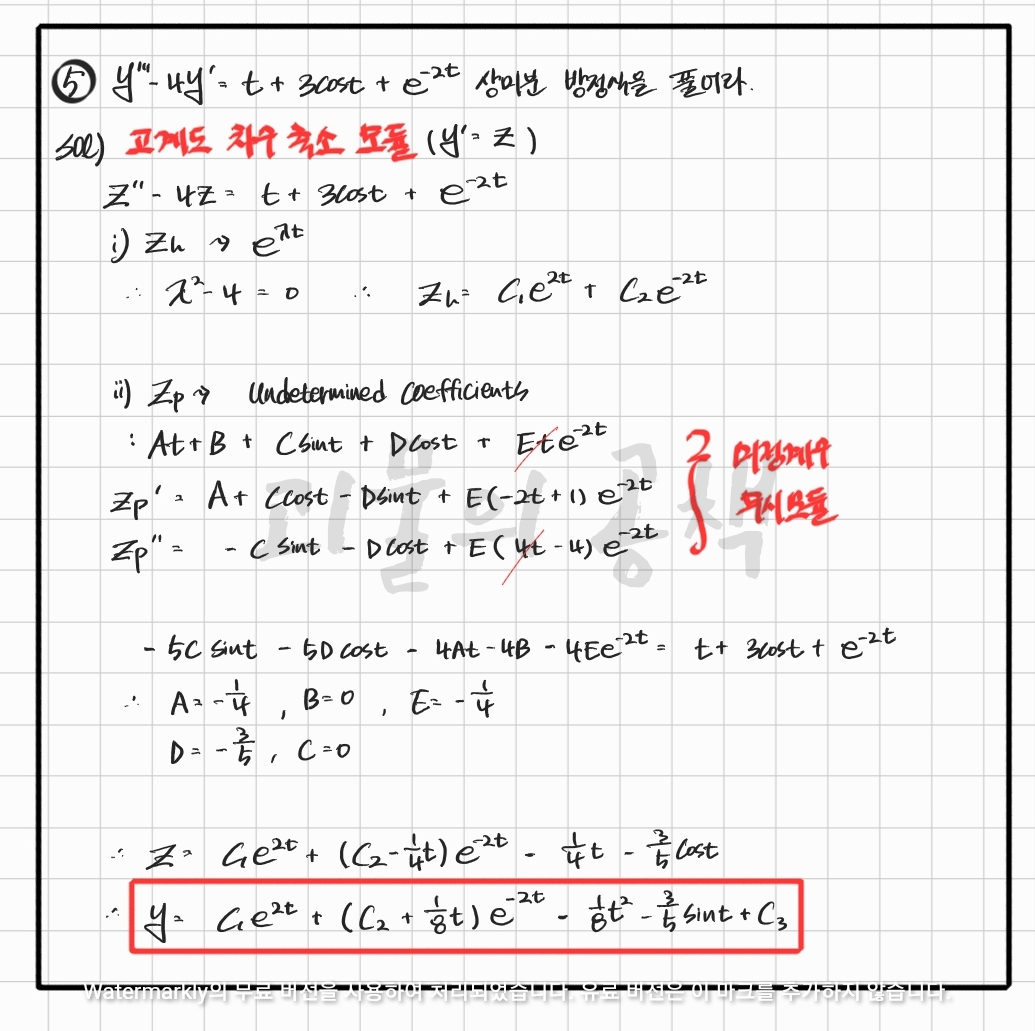 ⑤ y''' - 4y' = t + 3cost + e^{-2t} 상미분 방정식을 풀어라.
sol) 고계도 차수 축소 모듈 (y' = z)
z'' - 4z = t + 3cost + e^{-2t}
i) z_h → e^{λt}
∴ λ² - 4 = 0 ∴ z_h = C₁e^{2t} + C₂e^{-2t}
ii) z_p → Undetermined coefficients
: At + B + Csint + Dcost + Ete^{-2t}
z_p' = A + Ccost - Dsint + E(-2t+1)e^{-2t}
z_p'' = - Csint - Dcost + E(4t-4)e^{-2t}
미정계수
무시모듈
미물의 공책
- 5Csint - 5Dcost - 4At - 4B - 4Ee^{-2t} = t + 3cost + e^{-2t}
∴ A = -1/4 , B = 0 , E = -1/4
D = -3/5 , C = 0
∴ z = C₁e^{2t} + (C₂ - 1/4 t)e^{-2t} - 1/4 t - 3/5 cost
∴ y = C₁e^{2t} + (C₂ + 1/8 t)e^{-2t} - 1/8 t² - 3/5 sint + C₃
Watermarkly의 무료 버전을 사용하여 처리되었습니다. 유료 버전은 이 마크를 추가하지 않습니다.